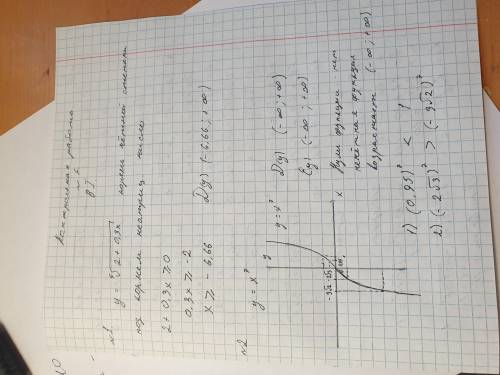 Контрольная работа
№1 y = √2 + 0,3x корень чётной степени
под корнем неотриц число
2 + 0,3x ⩾ 0
0,3x ⩾ -2
x ⩾ - 6,66 D(y) (-6,66; +∞)
№2
y = x⁷ y = x⁷ D(y) (-∞; +∞)
E(y) (-∞; +∞)
Нули функции нет
нечётная функция
возрастает (-∞; +∞)
y
x
1) (0,95)⁷ < 1
2) (-2√3)⁷ > (-3√2)⁷